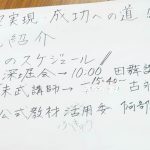 実現・成功への道
紹介
のスケジュール!!
深堀会→10:00 田
末武講師→ 15:40 古
公式教材活用委 阿部